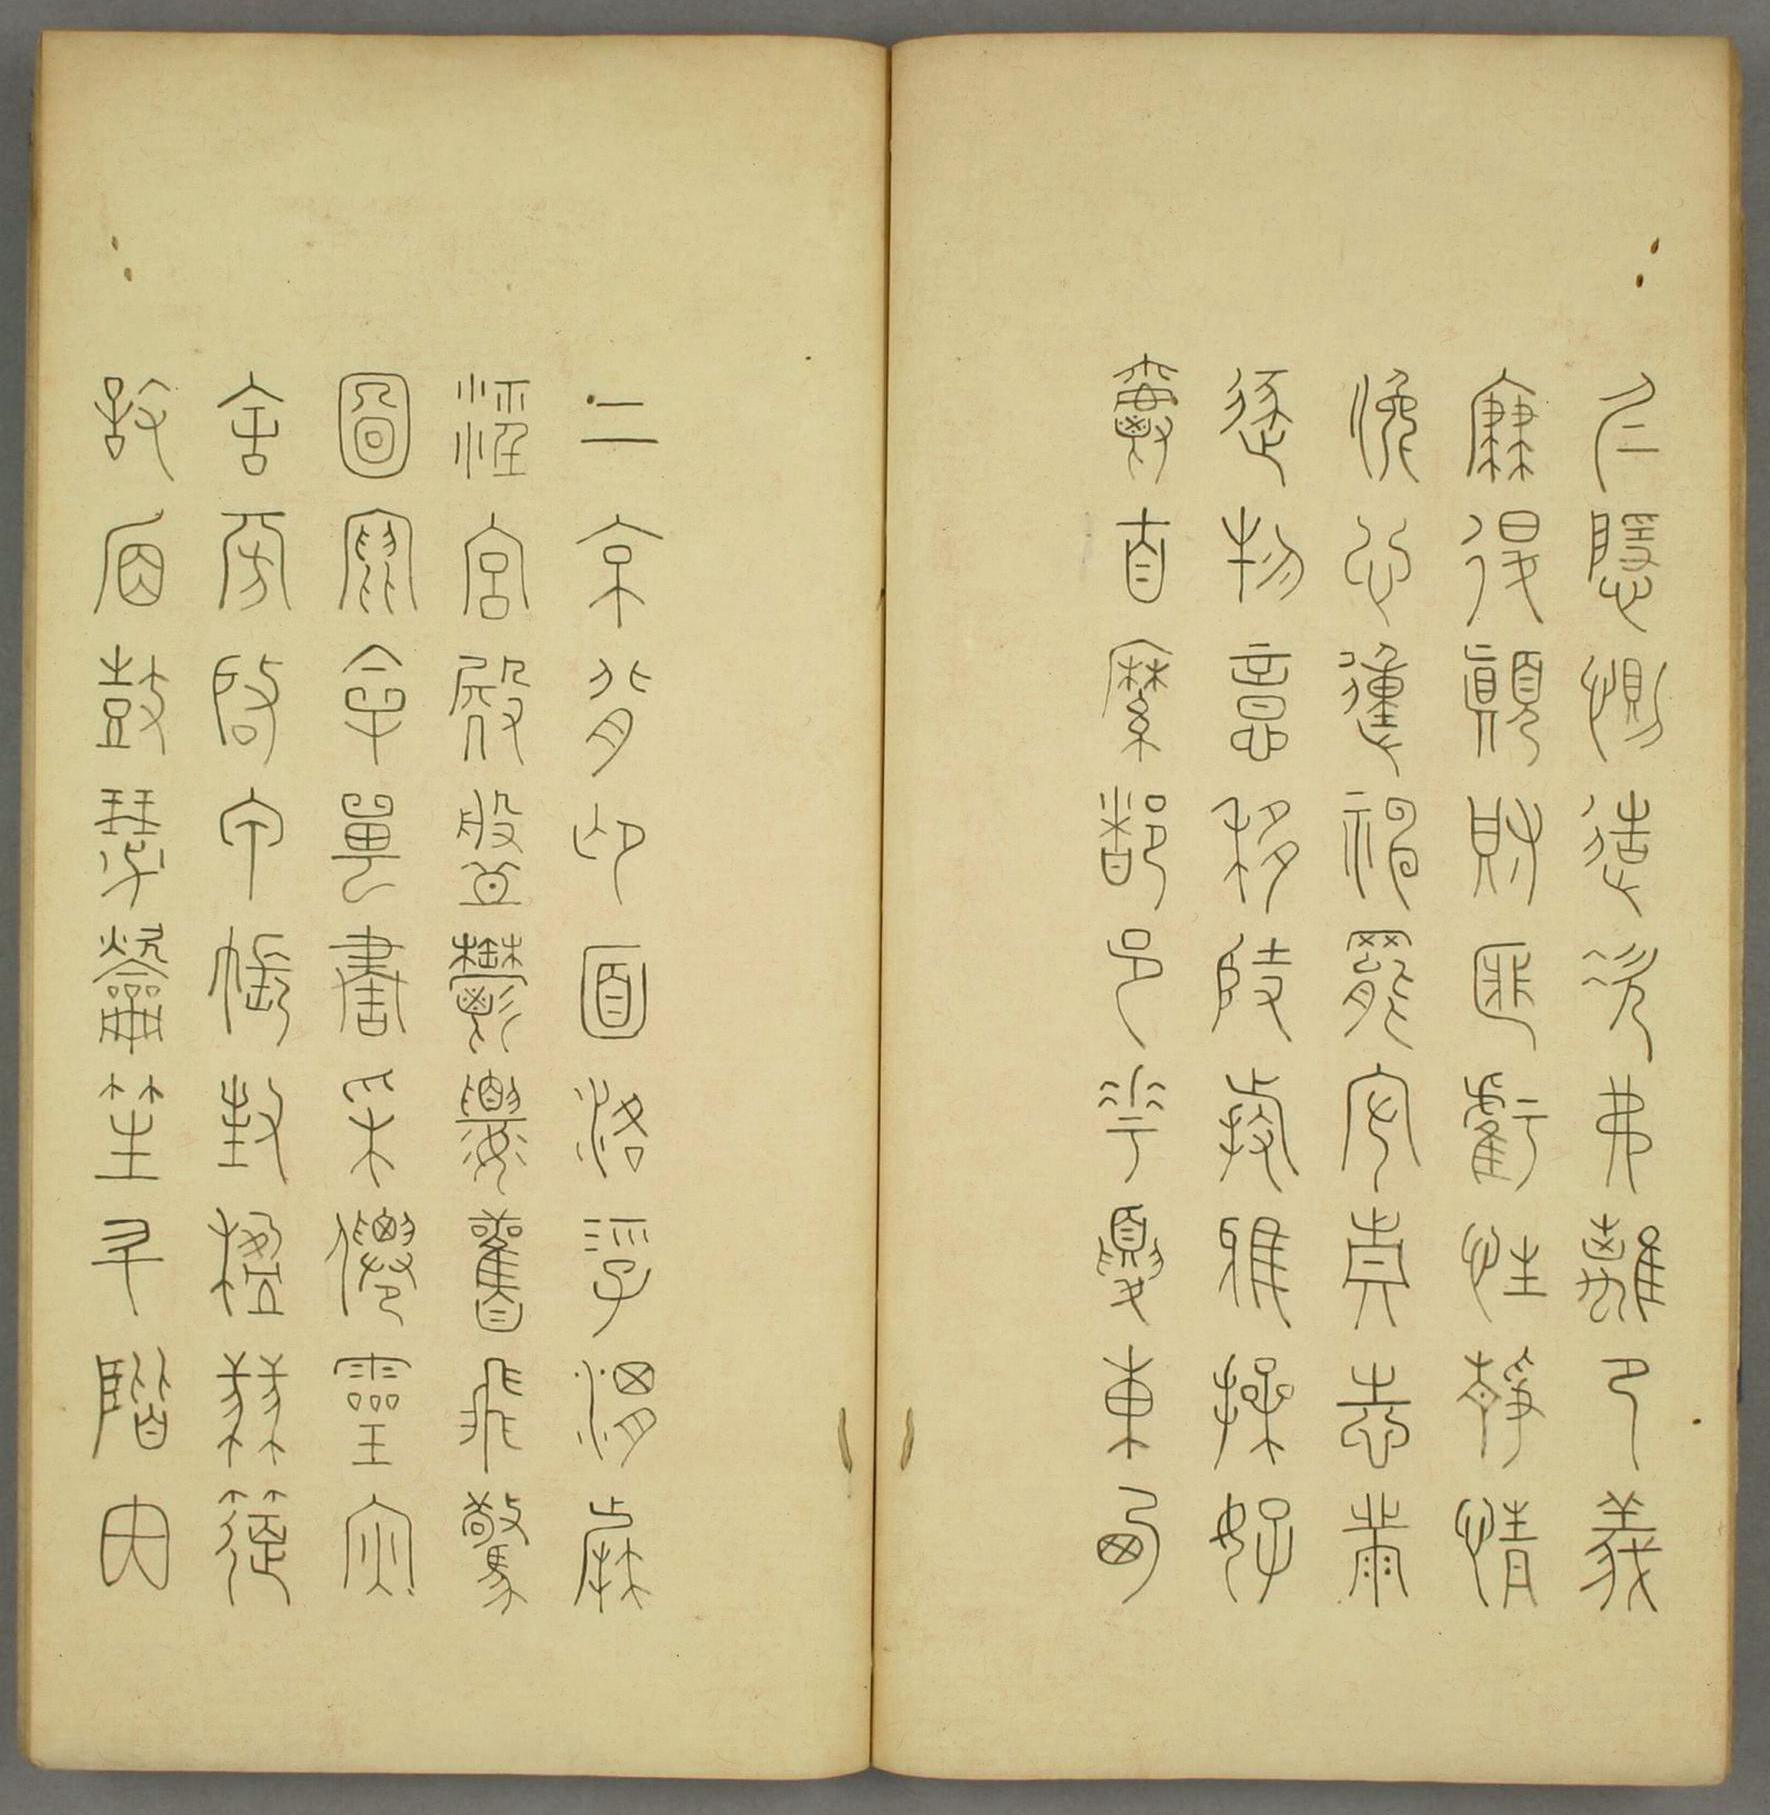 仁隱惻造次弗離節義
廉退顛沛匪虧性靜情
逸心動神疲守真志滿
逐物意移堅持雅操好
爵自縻都邑華夏東西
二京背邙面洛浮渭據
涇宮殿盤鬱樓觀飛驚
圖寫禽獸畫彩僊靈丙
舍傍啟甲帳對楹肆筵
設席鼓瑟龡笙升階內